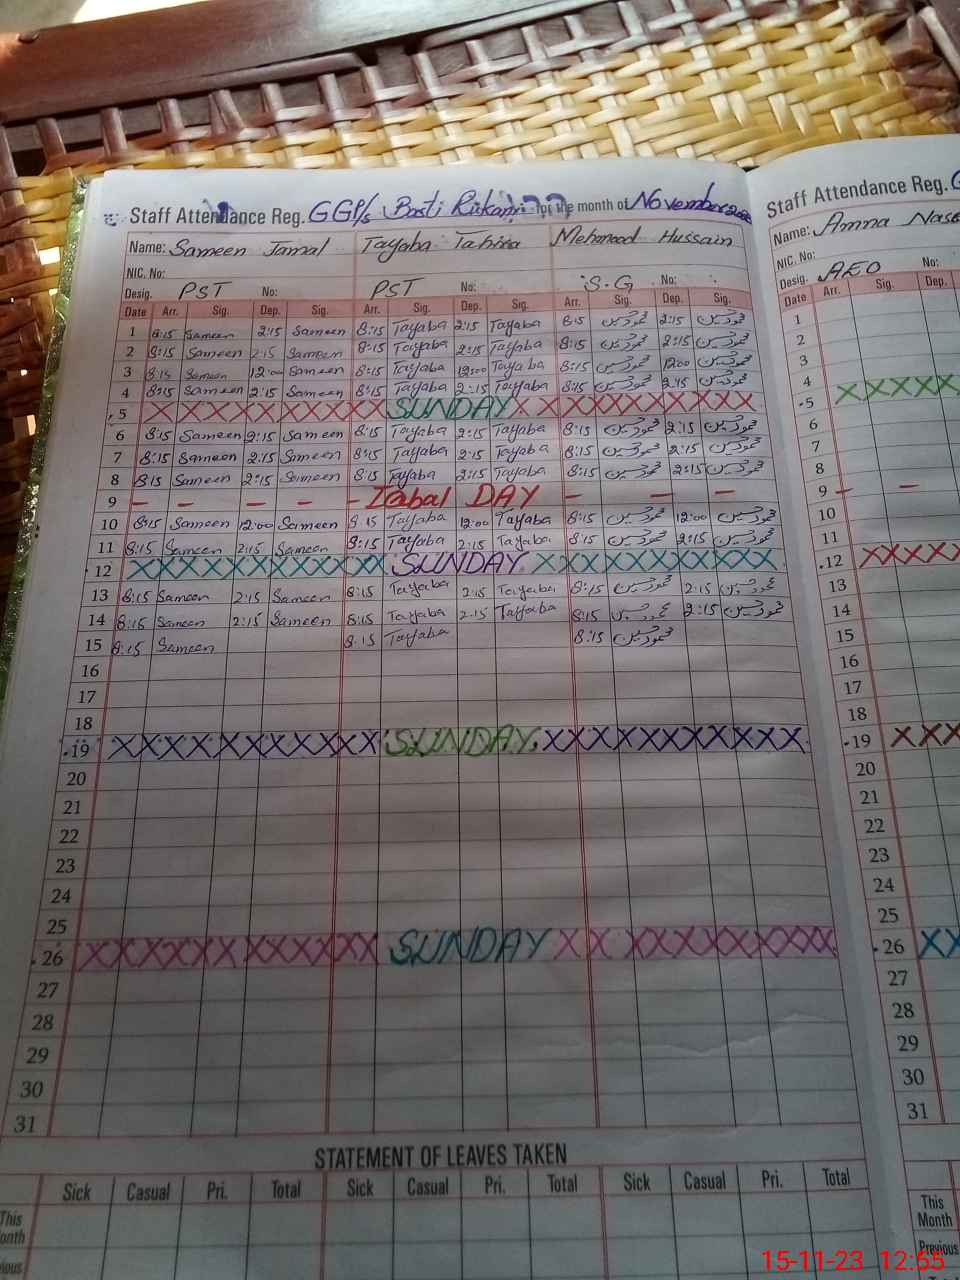 Staff Attendance Reg. GGP/s Basti Rukanı for the month of November
Name: Sameen Jamal Tayaba Tahira Mehmood Hussain
NIC. No:
Desig. PST No: PST No: S.G No:
Date Arr. Sig. Dep. Sig. Arr. Sig. Dep. Sig. Arr. Sig. Dep. Sig.
1 8:15 Sameen 2:15 Sameen 8:15 Tayaba 2:15 Tayaba 8:15 محمود حسین 2:15 محمود حسین
2 8:15 Sameen 2:15 Sameen 8:15 Tayaba 2:15 Tayaba 8:15 محمود حسین 2:15 محمود حسین
3 8:15 Sameen 12:00 Sameen 8:15 Tayaba 12:00 Tayaba 8:15 محمود حسین 12:00 محمود حسین
4 8:15 Sameen 2:15 Sameen 8:15 Tayaba 2:15 Tayaba 8:15 محمود حسین 2:15 محمود حسین
5 X X X X X X X X X X X SUNDAY X X X X X X X X X X X X
6 8:15 Sameen 2:15 Sameen 8:15 Tayaba 2:15 Tayaba 8:15 محمود حسین 2:15 محمود حسین
7 8:15 Sameen 2:15 Sameen 8:15 Tayaba 2:15 Tayaba 8:15 محمود حسین 2:15 محمود حسین
8 8:15 Sameen 2:15 Sameen 8:15 Tayaba 2:15 Tayaba 8:15 محمود حسین 2:15 محمود حسین
9 – – – – – Iabal DAY – – –
10 8:15 Sameen 12:00 Sameen 8:15 Tayaba 12:00 Tayaba 8:15 محمود حسین 12:00 محمود حسین
11 8:15 Sameen 2:15 Sameen 8:15 Tayaba 2:15 Tayaba 8:15 محمود حسین 2:15 محمود حسین
12 XXXXXXXXXXXX SUNDAY XXXXXXXXXXX
13 8:15 Sameen 2:15 Sameen 8:15 Tayaba 2:15 Tayaba 8:15 محمود حسین 2:15 محمود حسین
14 8:15 Sameen 2:15 Sameen 8:15 Tayaba 2:15 Tayaba 8:15 محمود حسین 2:15 محمود حسین
15 8:15 Sameen 8:15 Tayaba 8:15 محمود حسین
16
17
18
19 XXXXXXXXXXXX SUNDAY XXXXXXXXXXXX
20
21
22
23
24
25
26 XXXXXXXXXXXX SUNDAY XXXXXXXXXXXX
27
28
29
30
31
STATEMENT OF LEAVES TAKEN
Sick Casual Pri. Total Sick Casual Pri. Total Sick Casual Pri. Total
This
Staff Attendance Reg. G
Name: Amna
NIC. No:
Desig. AEO No:
Date Arr. Sig. Dep.
1
2
3
4
5 XXXXX
6
7
8
9 – –
10
11
12 XXXXX
13
14
15
16
17
18
19 XXX
20
21
22
23
24
25
26 XX
27
28
29
30
31
This
Month
Previous
15-11-23 12:55